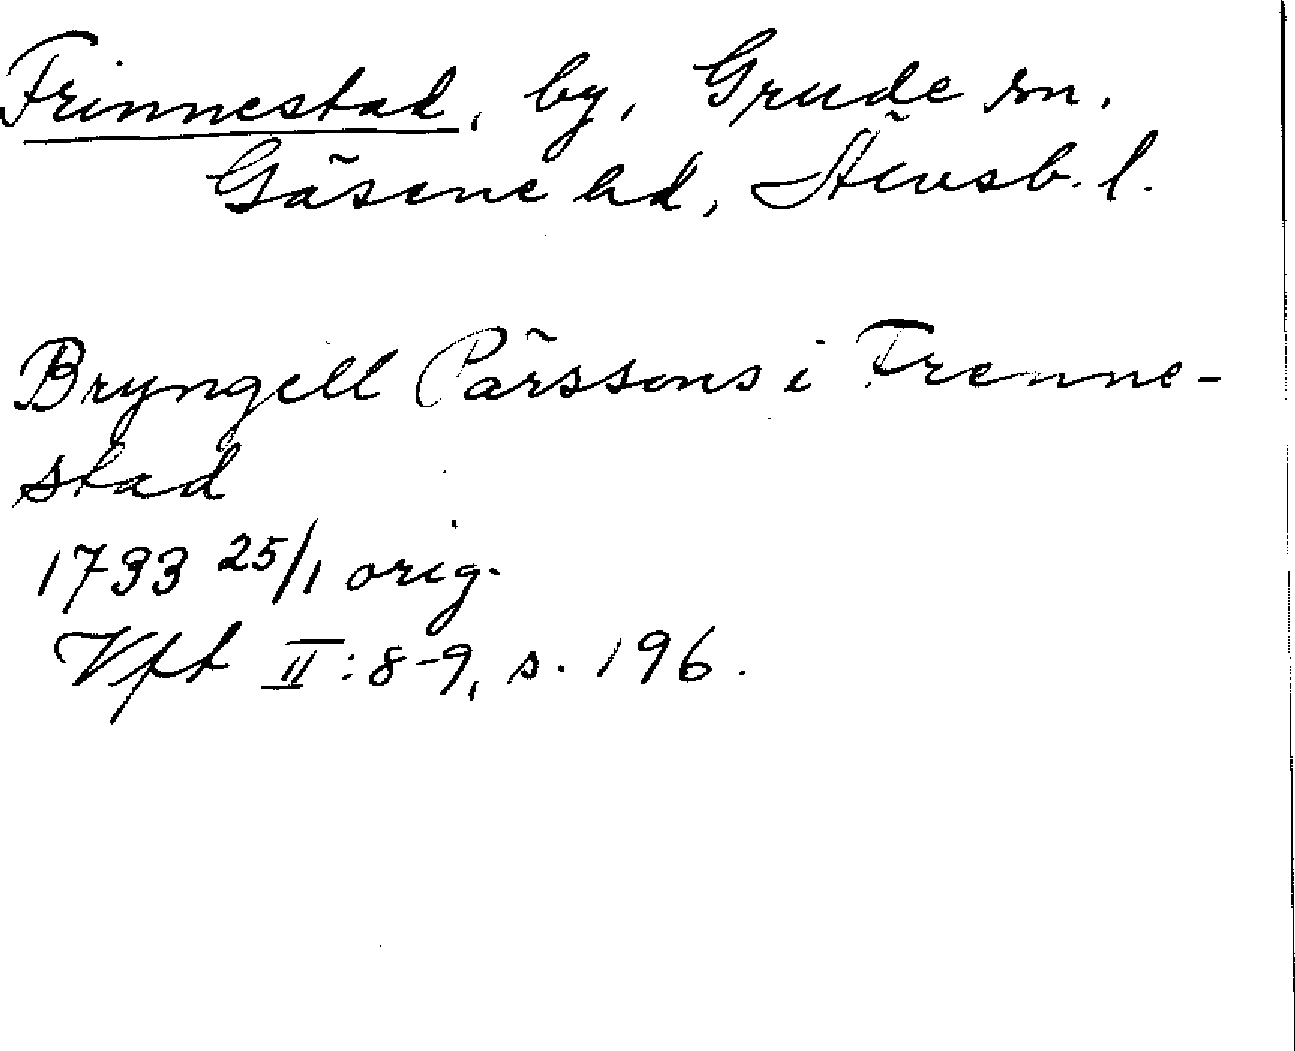 Frinnestad, by, Grude sn.
Gäsene hd, Älvsb. l.
Bryngell Pärssons i Frenne-
stad
1733 25/1 orig.
Vft II: 8-9, s. 196.